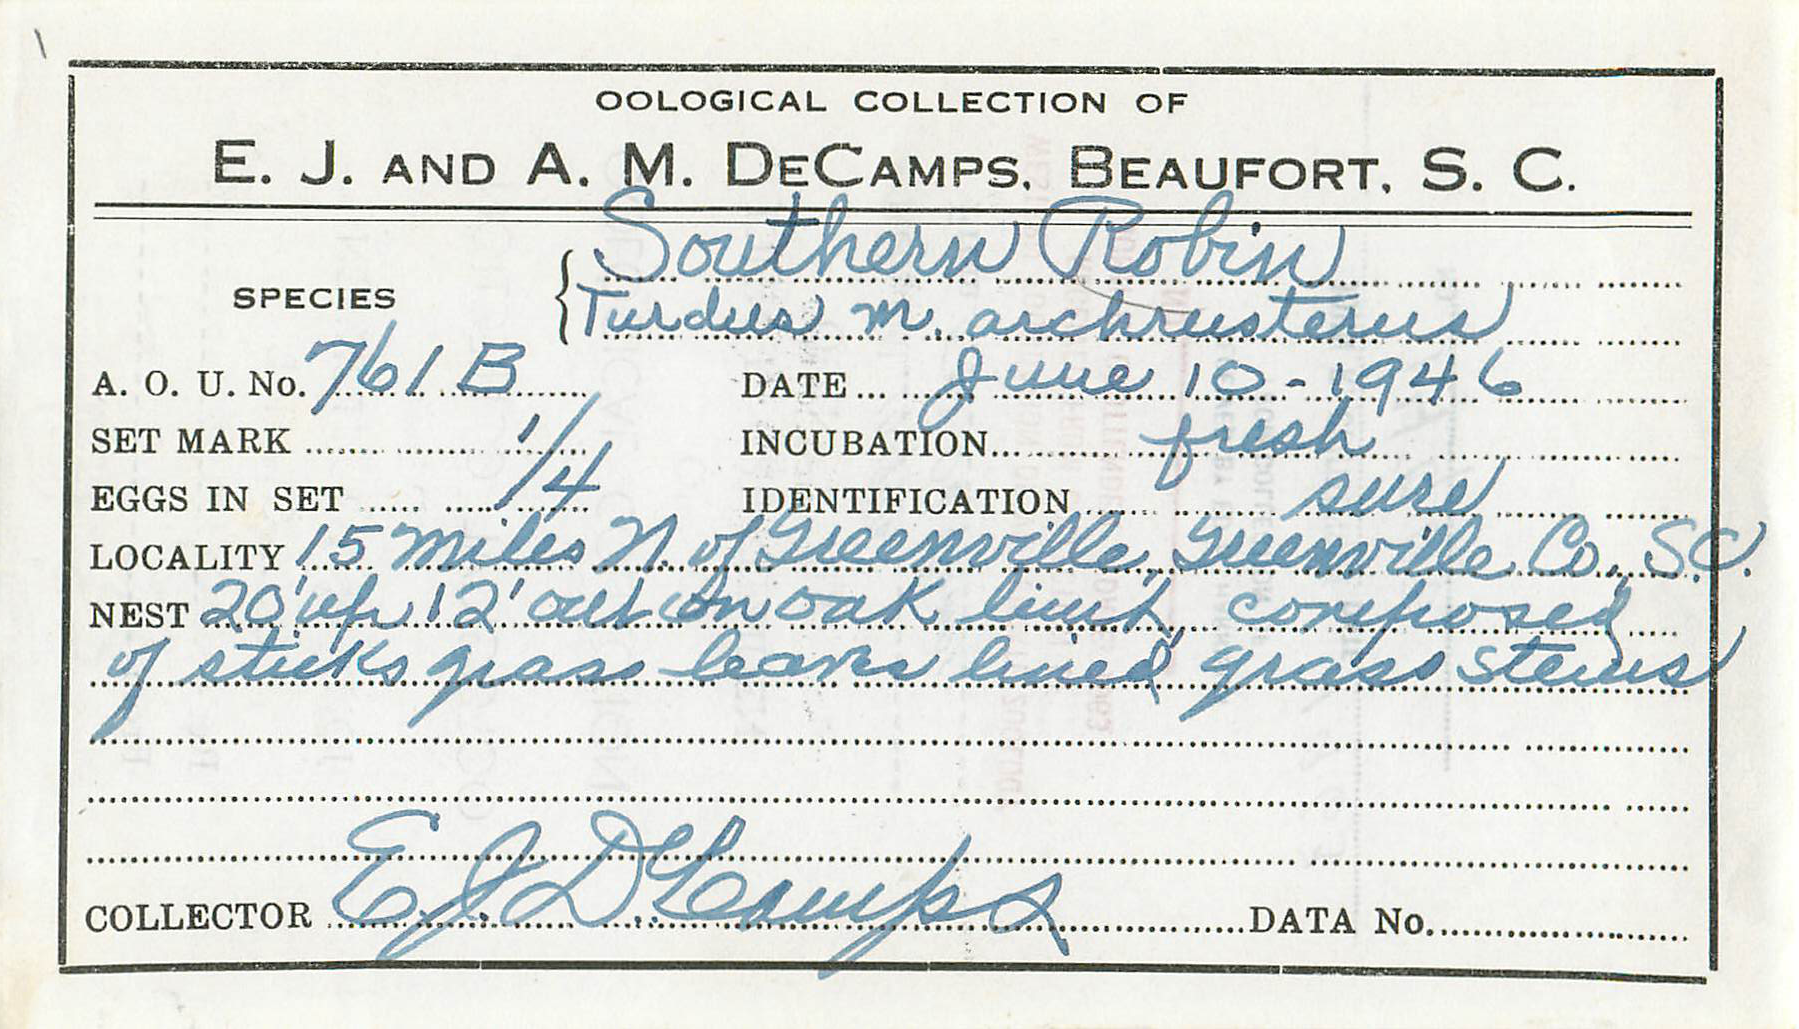 OOLOGICAL COLLECTION OF
E. J. AND A. M. DECAMPS, BEAUFORT, S. C.
Southern Robin
SPECIES
Turdus m. achrusterus
A. O. U. No. 761 B DATE June 10-1946
SET MARK 1/4 INCUBATION fresh
EGGS IN SET IDENTIFICATION sure
LOCALITY 15 miles N. of Greenville, Greenville Co., S.C.
NEST 20' up 12' out on oak limb, composed
of sticks grass leaves lined grass stems
COLLECTOR E J DeCamps DATA No.